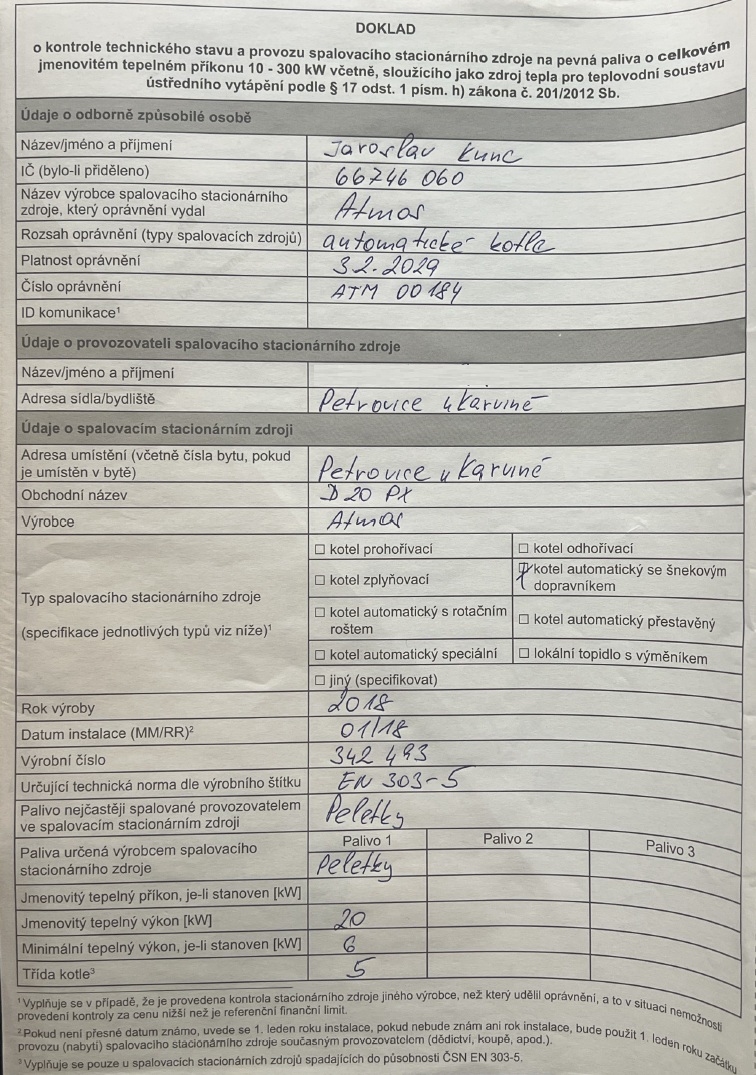 DOKLAD
o kontrole technického stavu a provozu spalovacího stacionárního zdroje na pevná paliva o celkovém
jmenovitém tepelném příkonu 10 - 300 kW včetně, sloužícího jako zdroj tepla pro teplovodní soustavu
ústředního vytápění podle § 17 odst. 1 písm. h) zákona č. 201/2012 Sb.
Údaje o odborně způsobilé osobě
Název/jméno a příjmení Jaroslav Kunc
IČ (bylo-li přiděleno) 66746 060
Název výrobce spalovacího stacionárního
zdroje, který oprávnění vydal Atmos
Rozsah oprávnění (typy spalovacích zdrojů) automatické kotle
Platnost oprávnění 3.2.2029
Číslo oprávnění ATM 00184
ID komunikace¹
Údaje o provozovateli spalovacího stacionárního zdroje
Název/jméno a příjmení
Adresa sídla/bydliště Petrovice u Karviné
Údaje o spalovacím stacionárním zdroji
Adresa umístění (včetně čísla bytu, pokud
je umístěn v bytě) Petrovice u Karviné
Obchodní název D 20 PX
Výrobce Atmos
Typ spalovacího stacionárního zdroje
(specifikace jednotlivých typů viz níže)¹
☐ kotel prohořívací ☐ kotel odhořívací
☐ kotel zplyňovací ☒ kotel automatický se šnekovým
dopravníkem
☐ kotel automatický s rotačním
roštem ☐ kotel automatický přestavěný
☐ kotel automatický speciální ☐ lokální topidlo s výměníkem
☐ jiný (specifikovat)
Rok výroby 2018
Datum instalace (MM/RR)² 01/18
Výrobní číslo 342 493
Určující technická norma dle výrobního štítku EN 303-5
Palivo nejčastěji spalované provozovatelem
ve spalovacím stacionárním zdroji Peletky
Paliva určená výrobcem spalovacího
stacionárního zdroje
Palivo 1 Palivo 2 Palivo 3
Peletky
Jmenovitý tepelný příkon, je-li stanoven [kW]
Jmenovitý tepelný výkon [kW] 20
Minimální tepelný výkon, je-li stanoven [kW] 6
Třída kotle³ 5
¹Vyplňuje se v případě, že je provedena kontrola stacionárního zdroje jiného výrobce, než který udělil oprávnění, a to v situaci nemožnosti
provedení kontroly za cenu nižší než je referenční finanční limit.
²Pokud není přesné datum známo, uvede se 1. leden roku instalace, pokud nebude znám ani rok instalace, bude použit 1. leden roku začátku
provozu (nabytí) spalovacího stacionárního zdroje současným provozovatelem (dědictví, koupě, apod.).
³Vyplňuje se pouze u spalovacích stacionárních zdrojů spadajících do působnosti ČSN EN 303-5.